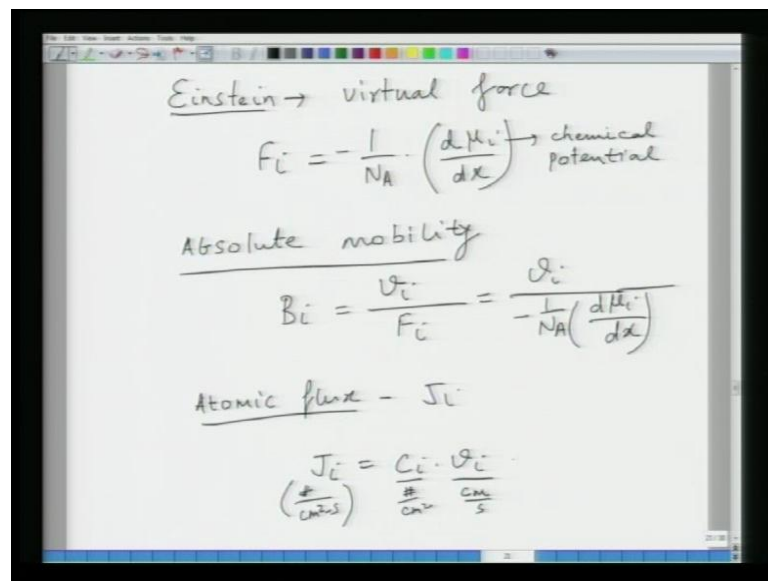 File Edit View Insert Actions Tools Help
Einstein → virtual force
Fi = - 1/NA · (dμi/dx) → chemical potential
Absolute mobility
Bi = vi/Fi = vi / (-1/NA (dμi/dx))
Atomic flux - Ji
Ji = Ci · vi
(#/cm²-s) #/cm² cm/s